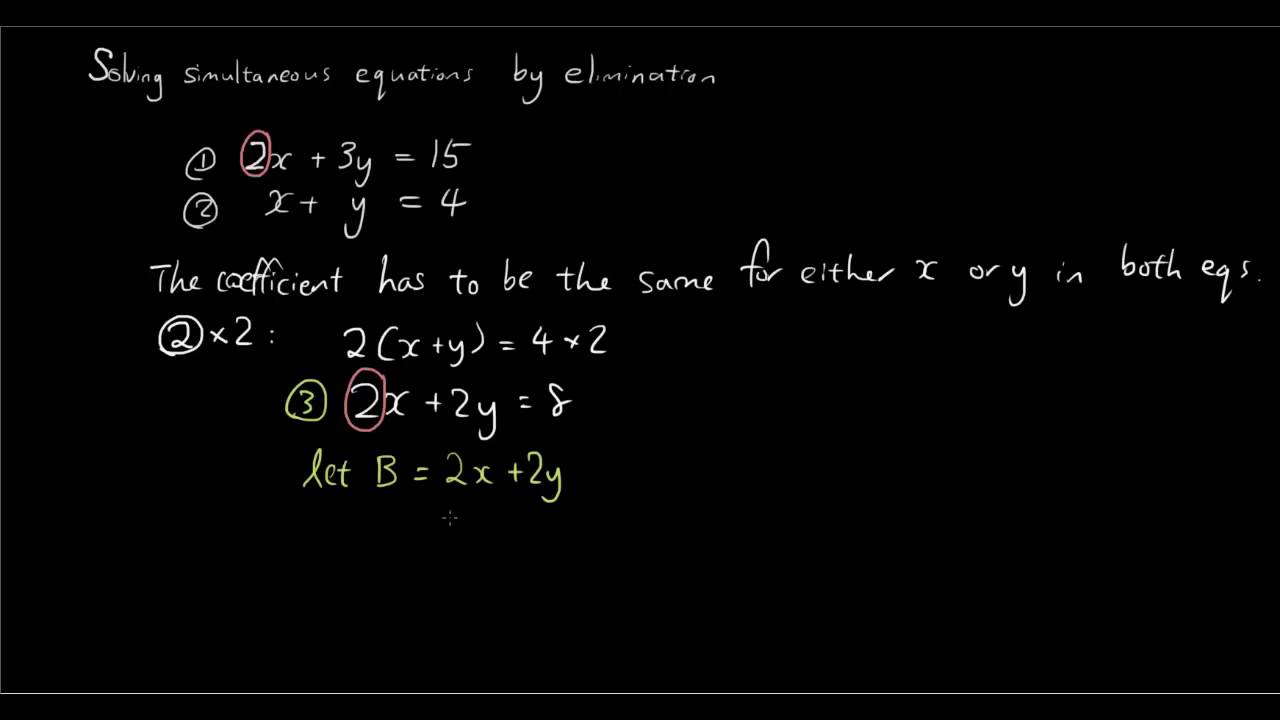 Solving simultaneous equations by elimination
① 2x + 3y = 15
② x + y = 4
The coefficient has to be the same for either x or y in both eqs.
② × 2 : 2(x + y) = 4 × 2
③ 2x + 2y = 8
let B = 2x + 2y